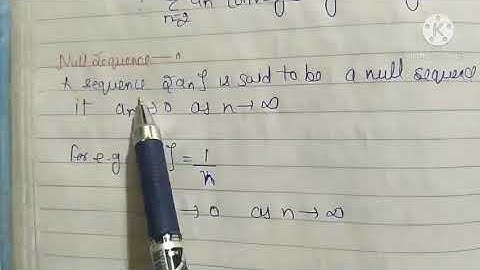 ∑ an conv
n=2
Null Sequence :-
A sequence {an} is said to be a null sequence
if an → 0 as n → ∞
for e.g } = 1/n
→ 0 as n → ∞
KINEMASTER